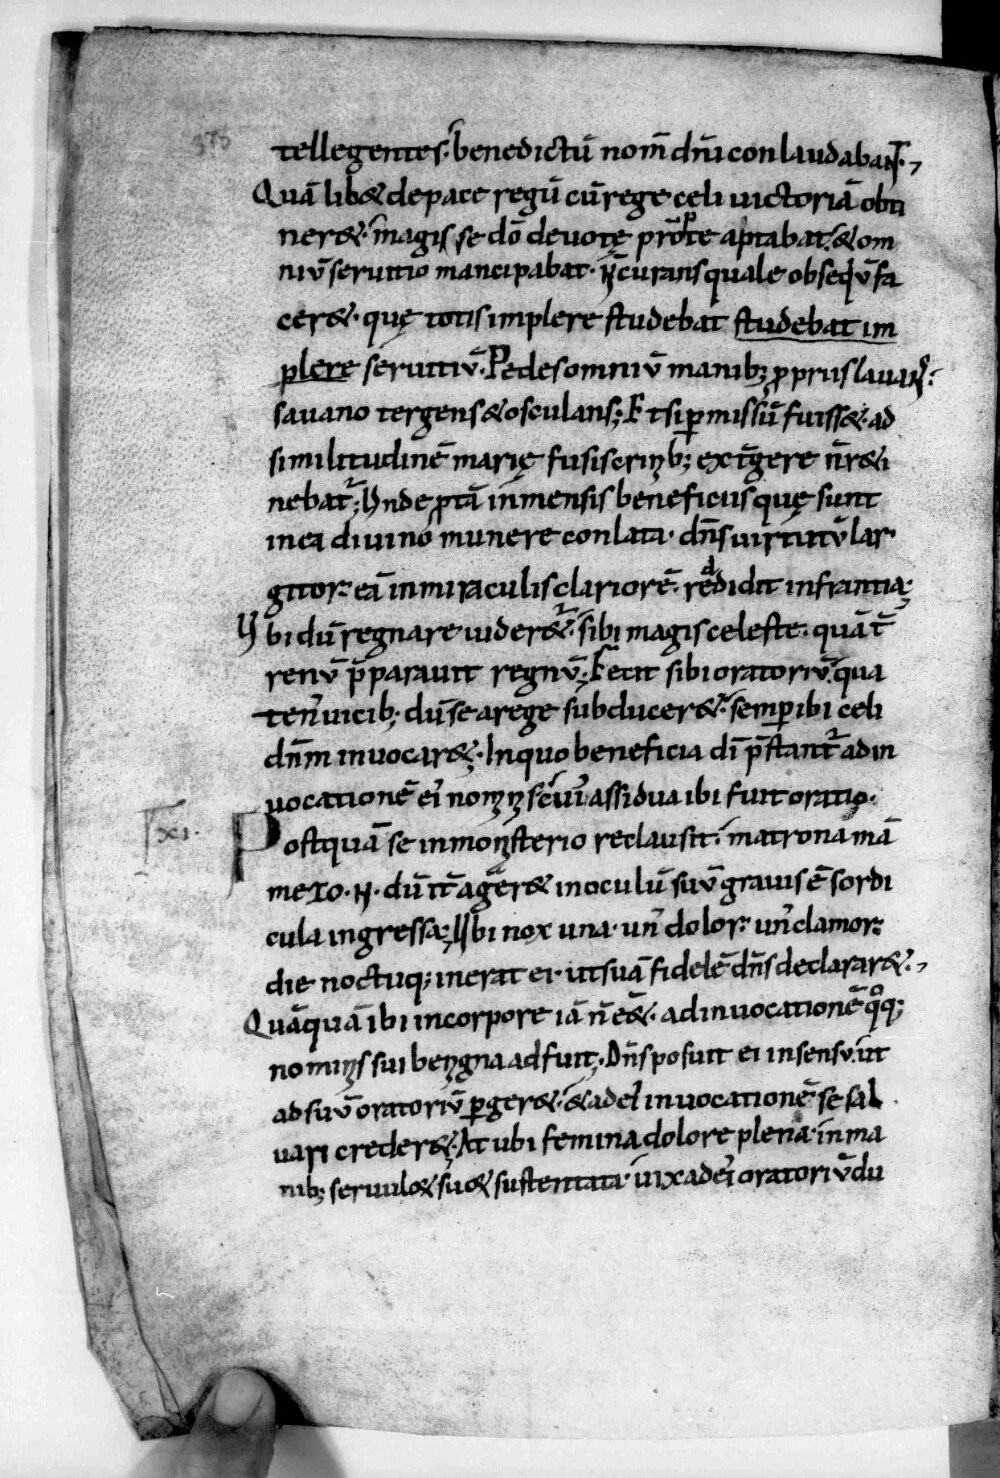 tellegentes· benedictū nom̄ dn̄i conlaudabaNT·,
Quā lib& depace regū cū rege celi uictoriā obti
ner&· magis se dō deuotę prōpte aptabat· & om
niū seruitio mancipabat· N̄ curans quale obsequiū fa
cer&· quę totis implere studebat studebat im
plere seruitiū· Pedes omniū manib; propriis lauaNS:
sauano tergens & osculans; Et si ꝑmissū fuiss&· ad
similitudinē marię fusis crinib; extḡere n̄ r&i
nebat᷒; Unde ꝓ tā inmensis beneficiis quę sunt
inea diuino munere conlata· dn̄s uirtutū lar
gitor· eā inmiraculis clariorē· reddidit infrantia;
Ubi dū regnare uider&᷒· sibi magis celeste· quā t̄
renū p̄parauit regnū; Fecit sibi oratoriū· qua
ten᷒ uicib; dū se arege subducer&᷒· semꝑ ibi celi
dn̄m inuocar&; Inquo beneficia dī p̄stant᷒ adin
uocationē ei᷒ nomin̄ sc̄ui᷒ assidua ibi fuit oratio·
xi· Postquā se inmonasterio reclausit· matrona mā
mezo· N· dū it̄ ager& inoculū suū grauis ē sordi
cula ingressa; Ubi nox una· un᷒ dolor· un᷒ clamor·
die noctuq; inerat ei· ut suā fidelē dn̄s declarar&·,
Quāquā ibi incorpore iā n̄ e&· adinuocationē qōq;
nominis sui benigna adfuit· Dn̄s posuit ei insensu· ut
ad suū oratoriū ꝑger&· & ad ei᷒ inuocationē se sal
uari creder&; At ubi femina dolore plena· inma
nib; seruulo & suo & sustentata· uix ad ei᷒ oratoriū du